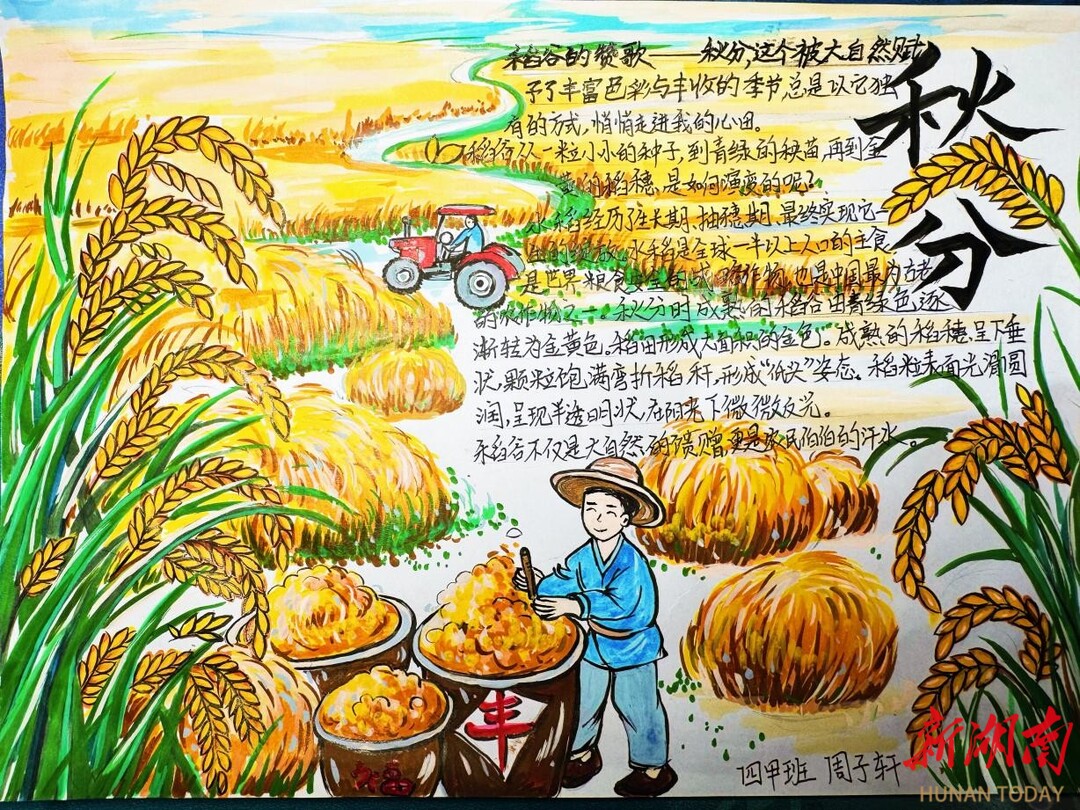 秋分
稻谷的赞歌——秋分,这个被大自然赋
予了丰富色彩与丰收的季节,总是以它独
有的方式,悄悄走进我的心田。
稻谷从一粒小小的种子,到青绿的秧苗,再到金
的稻穗,是如何演变的呢?
水稻经历了生长期、抽穗期、最终实现它一
水稻是全球一半以上人口的主食
是世界粮食安全的 作物,也是中国最为古老
的农作物之一。秋分时成熟的稻谷由青绿色,逐
渐转为金黄色。稻田形成大面积的金色。成熟的稻穗,呈下垂
状,颗粒饱满弯折稻秆,形成“低头”姿态。稻粒表面光滑圆
润,呈现半透明状,在阳光下微微反光。
稻谷不仅是大自然的馈赠更是农民伯伯的汗水。
丰
四甲班 周子轩
新湖南
HUNAN TODAY